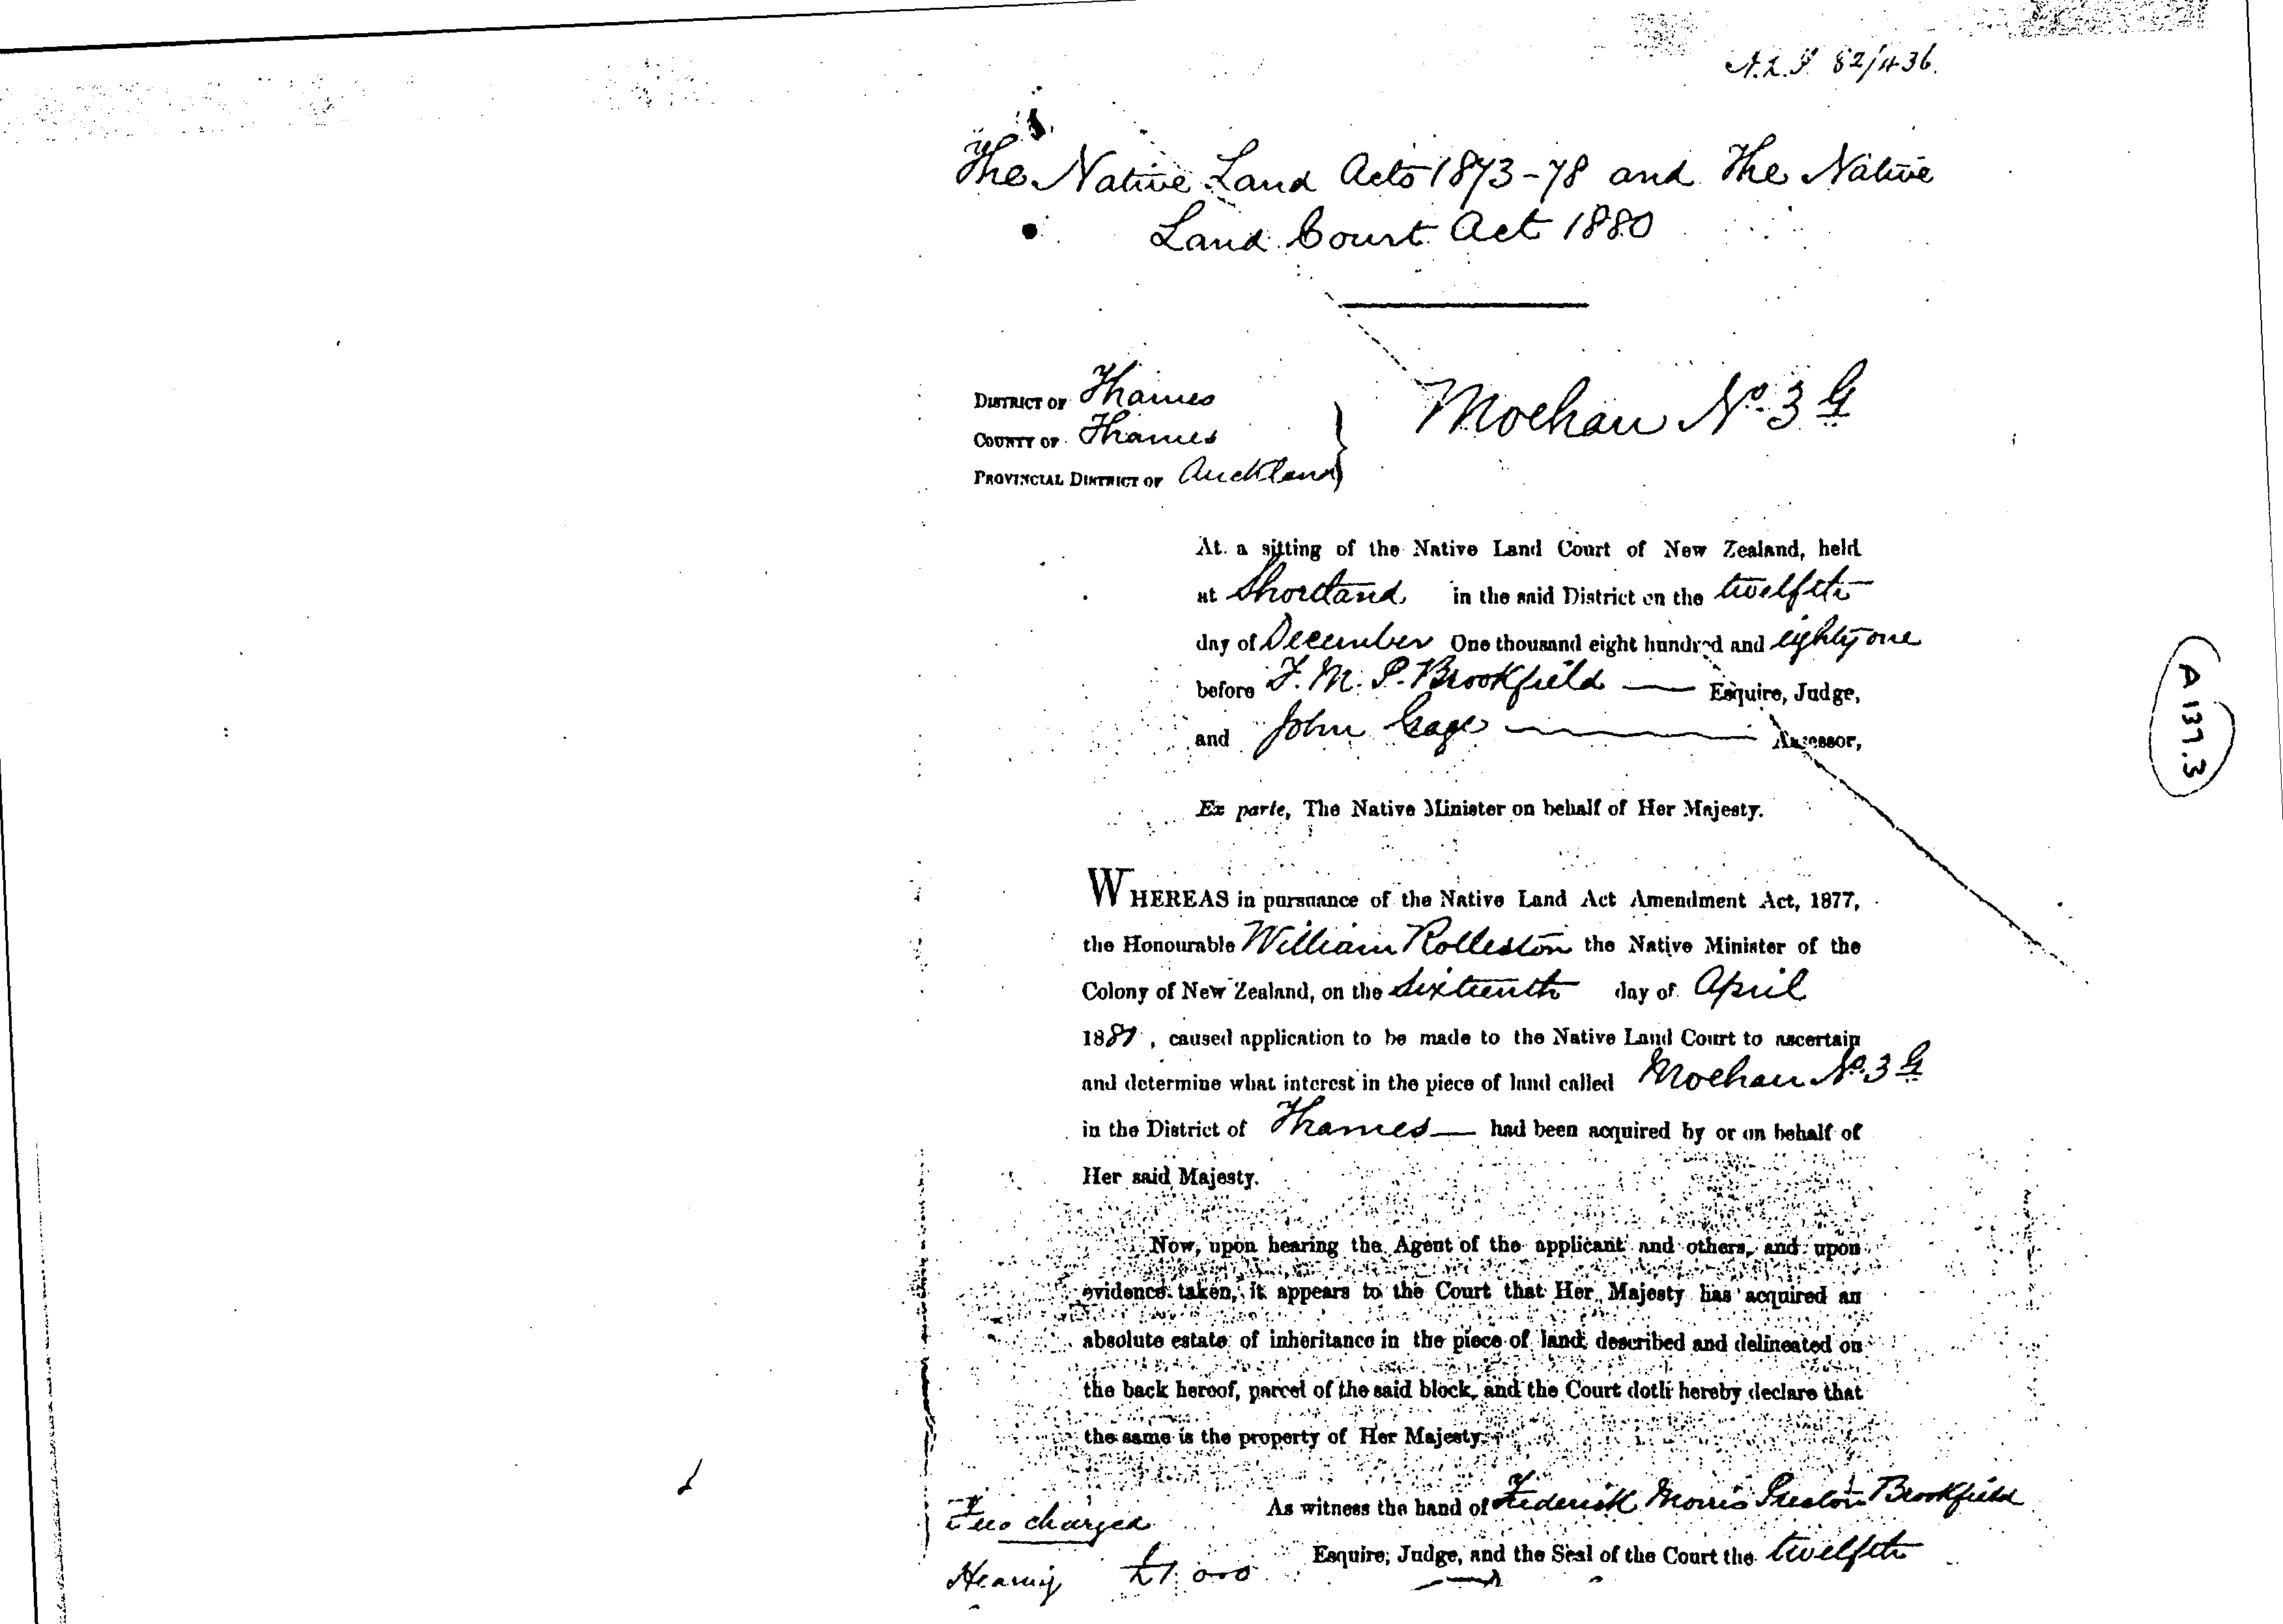 N.L.P. 82/436.
The Native Land Acts 1873-78 and The Native
Land Court Act 1880
DISTRICT OF Thames
COUNTY OF Thames
PROVINCIAL DISTRICT OF Auckland
Moehau No. 3 G
At a sitting of the Native Land Court of New Zealand, held
at Shortland in the said District on the twelfth
day of December One thousand eight hundred and eighty one
before F. M. P. Brookfield — Esquire, Judge,
and John Gage — Assessor,
Ex parte, The Native Minister on behalf of Her Majesty.
WHEREAS in pursuance of the Native Land Act Amendment Act, 1877,
the Honourable William Rolleston the Native Minister of the
Colony of New Zealand, on the Sixteenth day of April
1881, caused application to be made to the Native Land Court to ascertain
and determine what interest in the piece of land called Moehau No. 3 G
in the District of Thames — had been acquired by or on behalf of
Her said Majesty.
Now, upon hearing the Agent of the applicant and others, and upon
evidence taken, it appears to the Court that Her Majesty has acquired an
absolute estate of inheritance in the piece of land described and delineated on
the back hereof, parcel of the said block, and the Court doth hereby declare that
the same is the property of Her Majesty.
As witness the hand of Frederick Morris Preston Brookfield
Esquire, Judge, and the Seal of the Court the twelfth
Fees charged
Hearing £1.0.0
A137.3